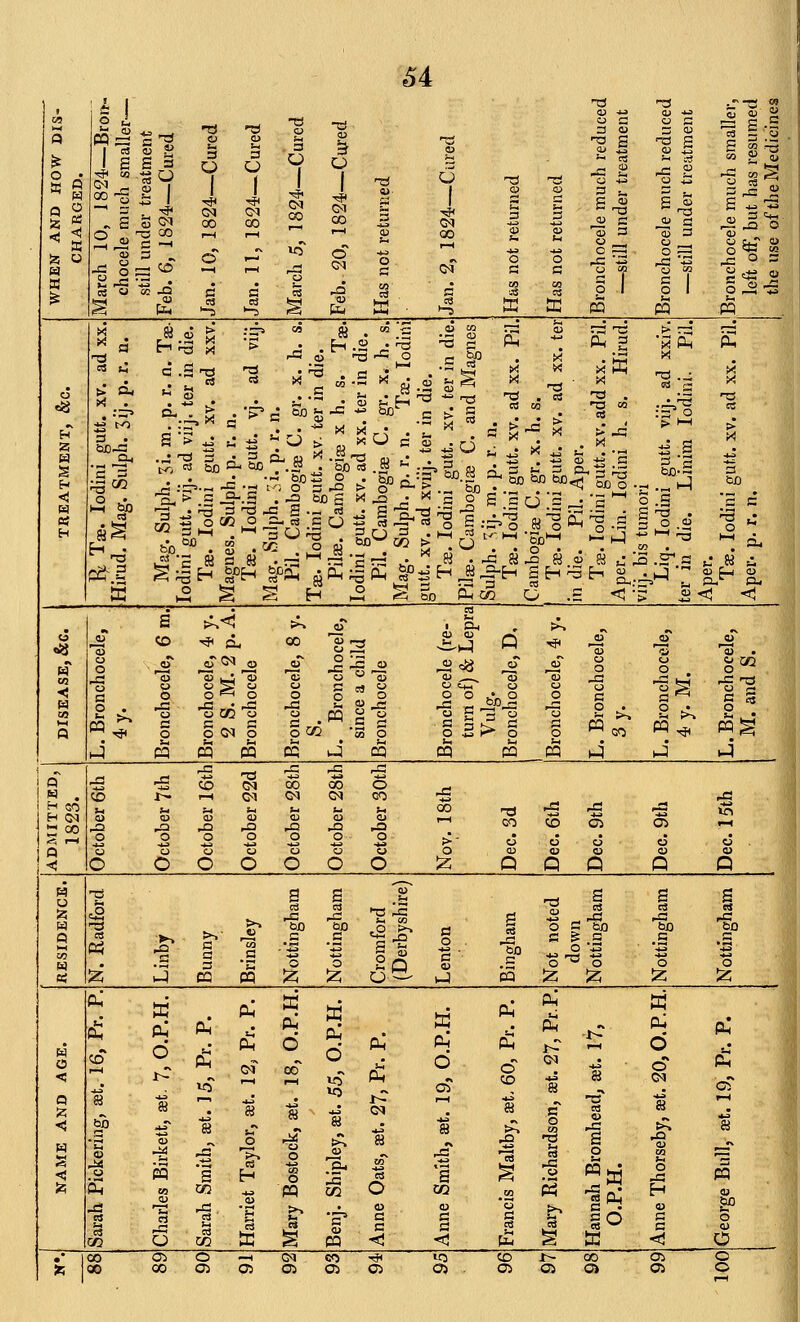 54
Nº. NAME AND AGE. RESIDENCE. ADMITTED, 1823. DISEASE, &c. TREATMENT, &c. WHEN AND HOW DISCHARGED.
88 Sarah Pickering, æt. 16, Pr. P. N. Radford October 6th L. Bronchocele, ℞ Tæ. Iodini gutt. xv. ad xx. March 10, 1824—Bron-
4 y. Hirud. Mag. Sulph. ʒij. p. r. n. chocele much smaller—
still under treatment
89 Charles Birkett, æt. 7, O.P.H. Linby October 7th Bronchocele, 6 m. Mag. Sulph. ʒi. m. p. r. n. Tæ. Feb. 6, 1824—Cured
Iodini gutt. vij. ad viij. ter in die.
90 Sarah Smith, æt. 15, Pr. P. Bunny October 16th Bronchocele, 4 y. Tæ. Iodini gutt. xv. ad xxv. Jan. 10, 1824—Cured
2 S. M. 2 p. A. Magnes. Sulph. p. r. n.
91 Harriet Taylor, æt. 12, Pr. P. Brinsley October 22d Bronchocele Tæ. Iodini gutt. vj. ad viij. Jan. 11, 1824—Cured
Mag. Sulph. ʒi. p. r. n.
92 Mary Bostock, æt. 18, O.P.H. Nottingham October 28th Bronchocele, 8 y. Pil. Cambogiæ C. gr. x. h. s. March 5, 1824—Cured
S. Tæ. Iodini gutt. xv. ter in die.
93 Benj. Shipley, æt. 55, O.P.H. Nottingham October 28th L. Bronchocele, Pilæ. Cambogiæ x h. s. Tæ. Feb. 20, 1824—Cured
since a child Iodini gutt. xv. ad xx. ter in die.
94 Anne Oats, æt. 27, Pr. P. Cromford October 30th Bronchocele Pil. Cambogiæ C. gr. x. h. s. Has not returned
(Derbyshire) Mag. Sulph. p. r. n. Tæ. Iodini
gutt. xv. ad xviij. ter in die.
95 Anne Smith, æt. 19, O.P.H. Lenton Nov. 18th Bronchocele (re- Tæ. Iodini gutt. xv. ter in die. Jan. 2, 1824—Cured
turn of) & Lepra Pilæ. Cambogiæ C. and Magnes
Vulg. Sulph. ʒij. m. p. r. n.
96 Francis Maltby, æt. 60, Pr. P. Bingham Dec. 3d Bronchocele, D. Tæ. Iodini gutt. xv. ad xx. Pil. Has not returned
Cambogiæ C. gr. x. h. s.
97 Mary Richardson, æt. 27, Pr. P. Not noted Dec. 6th Bronchocele, 4 y. Tæ. Iodini gutt. xv. ad xx. ter Has not returned
down in die. Pil. Aper.
98 Hannah Bromhead, æt. 17, Nottingham Dec. 9th L. Bronchocele, Tæ. Iodini gutt. xv. add xx. Pil. Bronchocele much reduced
O.P.H. 3 y. Aper. Lin. Iodini h. s. Hirud. —still under treatment
viij. bis tumori
99 Anne Thorseby, æt. 20, O.P.H. Nottingham Dec. 9th L. Bronchocele, Liq. Iodini gutt. viij. ad xxiv. Bronchocele much reduced
4 y. M. ter in die. Linim Iodini. Pil. —still under treatment
Aper.
100 George Bull, æt. 19, Pr. P. Nottingham Dec. 15th L. Bronchocele, Tæ. Iodini gutt. xv. ad xx. Pil. Bronchocele much smaller,
M. and S. Aper. p. r. n. left off, but has resumed
the use of the Medicines